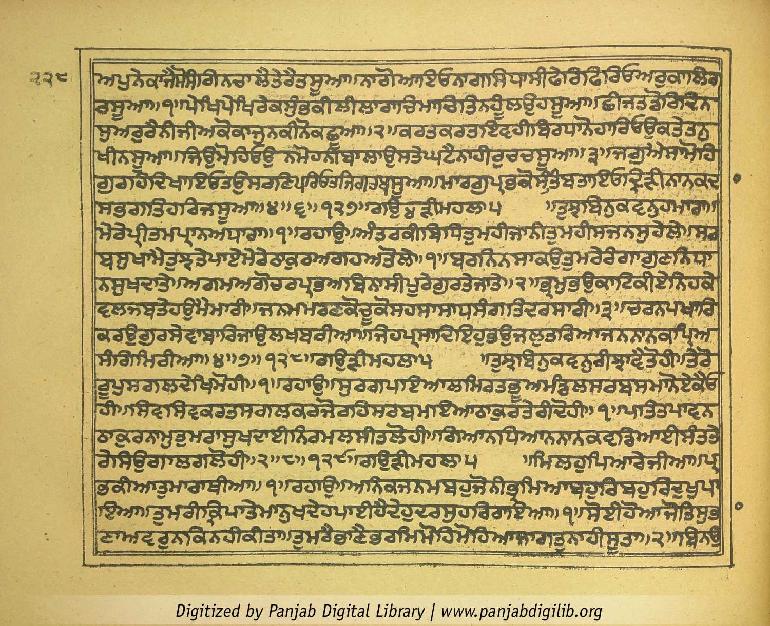 ੨੨੮
ਅਪੁਨੇਕਾਜੈਸੋਸੰਗਿਨਚਾਲੈਤੇਰੈਤਸੂਆ॥ਨਾਗੋਆਇਓਨਾਗਸਿਧਾਸੀਫੇਰਿਫਿਰਿਓਅਰੁਕਾਲਿਗ
ਰਸੂਆ॥੧॥ਪੇਖਿਪੇਖਿਰੇਕਸੁੰਭਕੀਲੀਲਾਰਾਚਿਮਾਚਿਤਿਨਹੂੰਲਉਹਸੂਆ॥ਛੀਜਤਡੋਰਿਦਿਨ
ਸੁਅਰੁਰੈਨੀਜੀਅਕੋਕਾਜੁਨਕੀਨੋਕਛੂਆ॥੨॥ਕਰਤਕਰਤਇਵਹੀਬਿਰਧਾਨੋਹਾਰਿਓਉਕਤੇਤਨੁ
ਖੀਨਸੂਆ॥ਜਿਉਮੋਹਿਓਉਨਿਮੋਹਨੀਬਾਲਾਉਸਤੇਘਟੈਨਾਹੀਰੁਚਚਸੂਆ॥੩॥ਜਗੁਐਸਾਮੋਹਿ
ਗੁਰਹਿਦਿਖਾਇਓਤਉਸਰਣਿਪਰਿਓਤਜਿਗਰਬਸੂਆ॥ਮਾਰਗੁਪ੍ਰਭਕੋਸੰਤਿਬਤਾਇਓਦ੍ਰਿੜੀਨਾਨਕਦਾ
ਸਭਗਤਿਹਰਿਜਸੂਆ॥੪॥੬॥੧੨੭॥ਗਉੜੀਮਹਲਾ੫ ॥ਤੁਝਬਿਨੁਕਵਨੁਹਮਾਰਾ॥
ਮੇਰੇਪ੍ਰੀਤਮਪ੍ਰਾਨਅਧਾਰਾ॥੧॥ਰਹਾਉ॥ਅੰਤਰਕੀਬਿਧਿਤੁਮਹੀਜਾਨੀਤੁਮਹੀਸਜਨਸੁਹੇਲੇ॥ਸਰ
ਬਸੁਖਾਮੈਤੁਝਤੇਪਾਏਮੇਰੇਠਾਕੁਰਅਗਹਅਤੋਲੇ॥੧॥ਬਰਨਿਨਸਾਕਉਤੁਮਰੇਰੰਗਾਗੁਣਨਿਧਾ
ਨਸੁਖਦਾਤੇ॥ਅਗਮਅਗੋਚਰਪ੍ਰਭਅਬਿਨਾਸੀਪੂਰੇਗੁਰਤੇਜਾਤੇ॥੨॥ਭ੍ਰਮੁਭਉਕਾਟਿਕੀਏਨਿਹਕੇ
ਵਲਜਬਤੇਹਉਮੈਮਾਰੀ॥ਜਨਮਮਰਣਕੋਚੂਕੋਸਹਸਾਸਾਧਸੰਗਤਿਦਰਸਾਰੀ॥੩॥ਚਰਨਪਖਾਰਿ
ਕਰਉਗੁਰਸੇਵਾਬਾਰਿਜਾਉਲਖਬਰੀਆ॥ਜਿਹਪ੍ਰਸਾਦਿਇਹੁਭਉਜਲੁਤਰਿਆਜਨਨਾਨਕਪ੍ਰਿਅ
ਸੰਗਿਮਿਰੀਆ॥੪॥੭॥੧੨੮॥ਗਉੜੀਮਹਲਾ੫ ॥ਤੁਝਬਿਨੁਕਵਨੁਰੀਝਾਵੈਤੋਹੀ॥ਤੇਰੋ
ਰੂਪੁਸਗਲਦੇਖਿਮੋਹੀ॥੧॥ਰਹਾਉ॥ਸੁਰਗਪਇਆਲਮਿਰਤਭੂਅਮੰਡਲਸਰਬਸਮਾਨੋਏਕੈਓ
ਹੀ॥ਸਿਵਸਿਵਕਰਤਸਗਲਕਰਜੋਰਹਿਸਰਬਮਇਆਠਾਕੁਰਤੇਰੀਦੋਹੀ॥੧॥ਪਤਿਤਪਾਵਨ
ਠਾਕੁਰਨਾਮੁਤੁਮਰਾਸੁਖਦਾਈਨਿਰਮਲਸੀਤਲੋਹੀ॥ਗਿਆਨਧਿਆਨਨਾਨਕਵਡਿਆਈਸੰਤਤੇ
ਰੇਸਿਉਗਾਲਗਲੋਹੀ॥੨॥੮॥੧੨੯॥ਗਉੜੀਮਹਲਾ੫ ॥ਮਿਲਹੁਪਿਆਰੇਜੀਆ॥ਪ੍ਰ
ਭਕੀਆਤੁਮਾਰਾਥੀਆ॥੧॥ਰਹਾਉ॥ਅਨਿਕਜਨਮਬਹੁਜੋਨੀਭ੍ਰਮਿਆਬਹੁਰਿਬਹੁਰਿਦੁਖੁਪਾ
ਇਆ॥ਤੁਮਰੀਕ੍ਰਿਪਾਤੇਮਾਨੁਖਦੇਹਪਾਈਹੈਦੇਹੁਦਰਸੁਹਰਿਰਾਇਆ॥੧॥ਸੋਈਹੋਆਜੋਤਿਸੁਭਾ
ਣਾਅਵਰੁਨਕਿਨਹੀਕੀਤਾ॥ਤੁਮਰੈਭਾਣੈਭਰਮਿਮੋਹਿਮੋਹਿਆਜਾਗਤੁਨਾਹੀਸੂਤਾ॥੨॥ਬਿਨਉ
Digitized by Panjab Digital Library | www.panjabdigilib.org